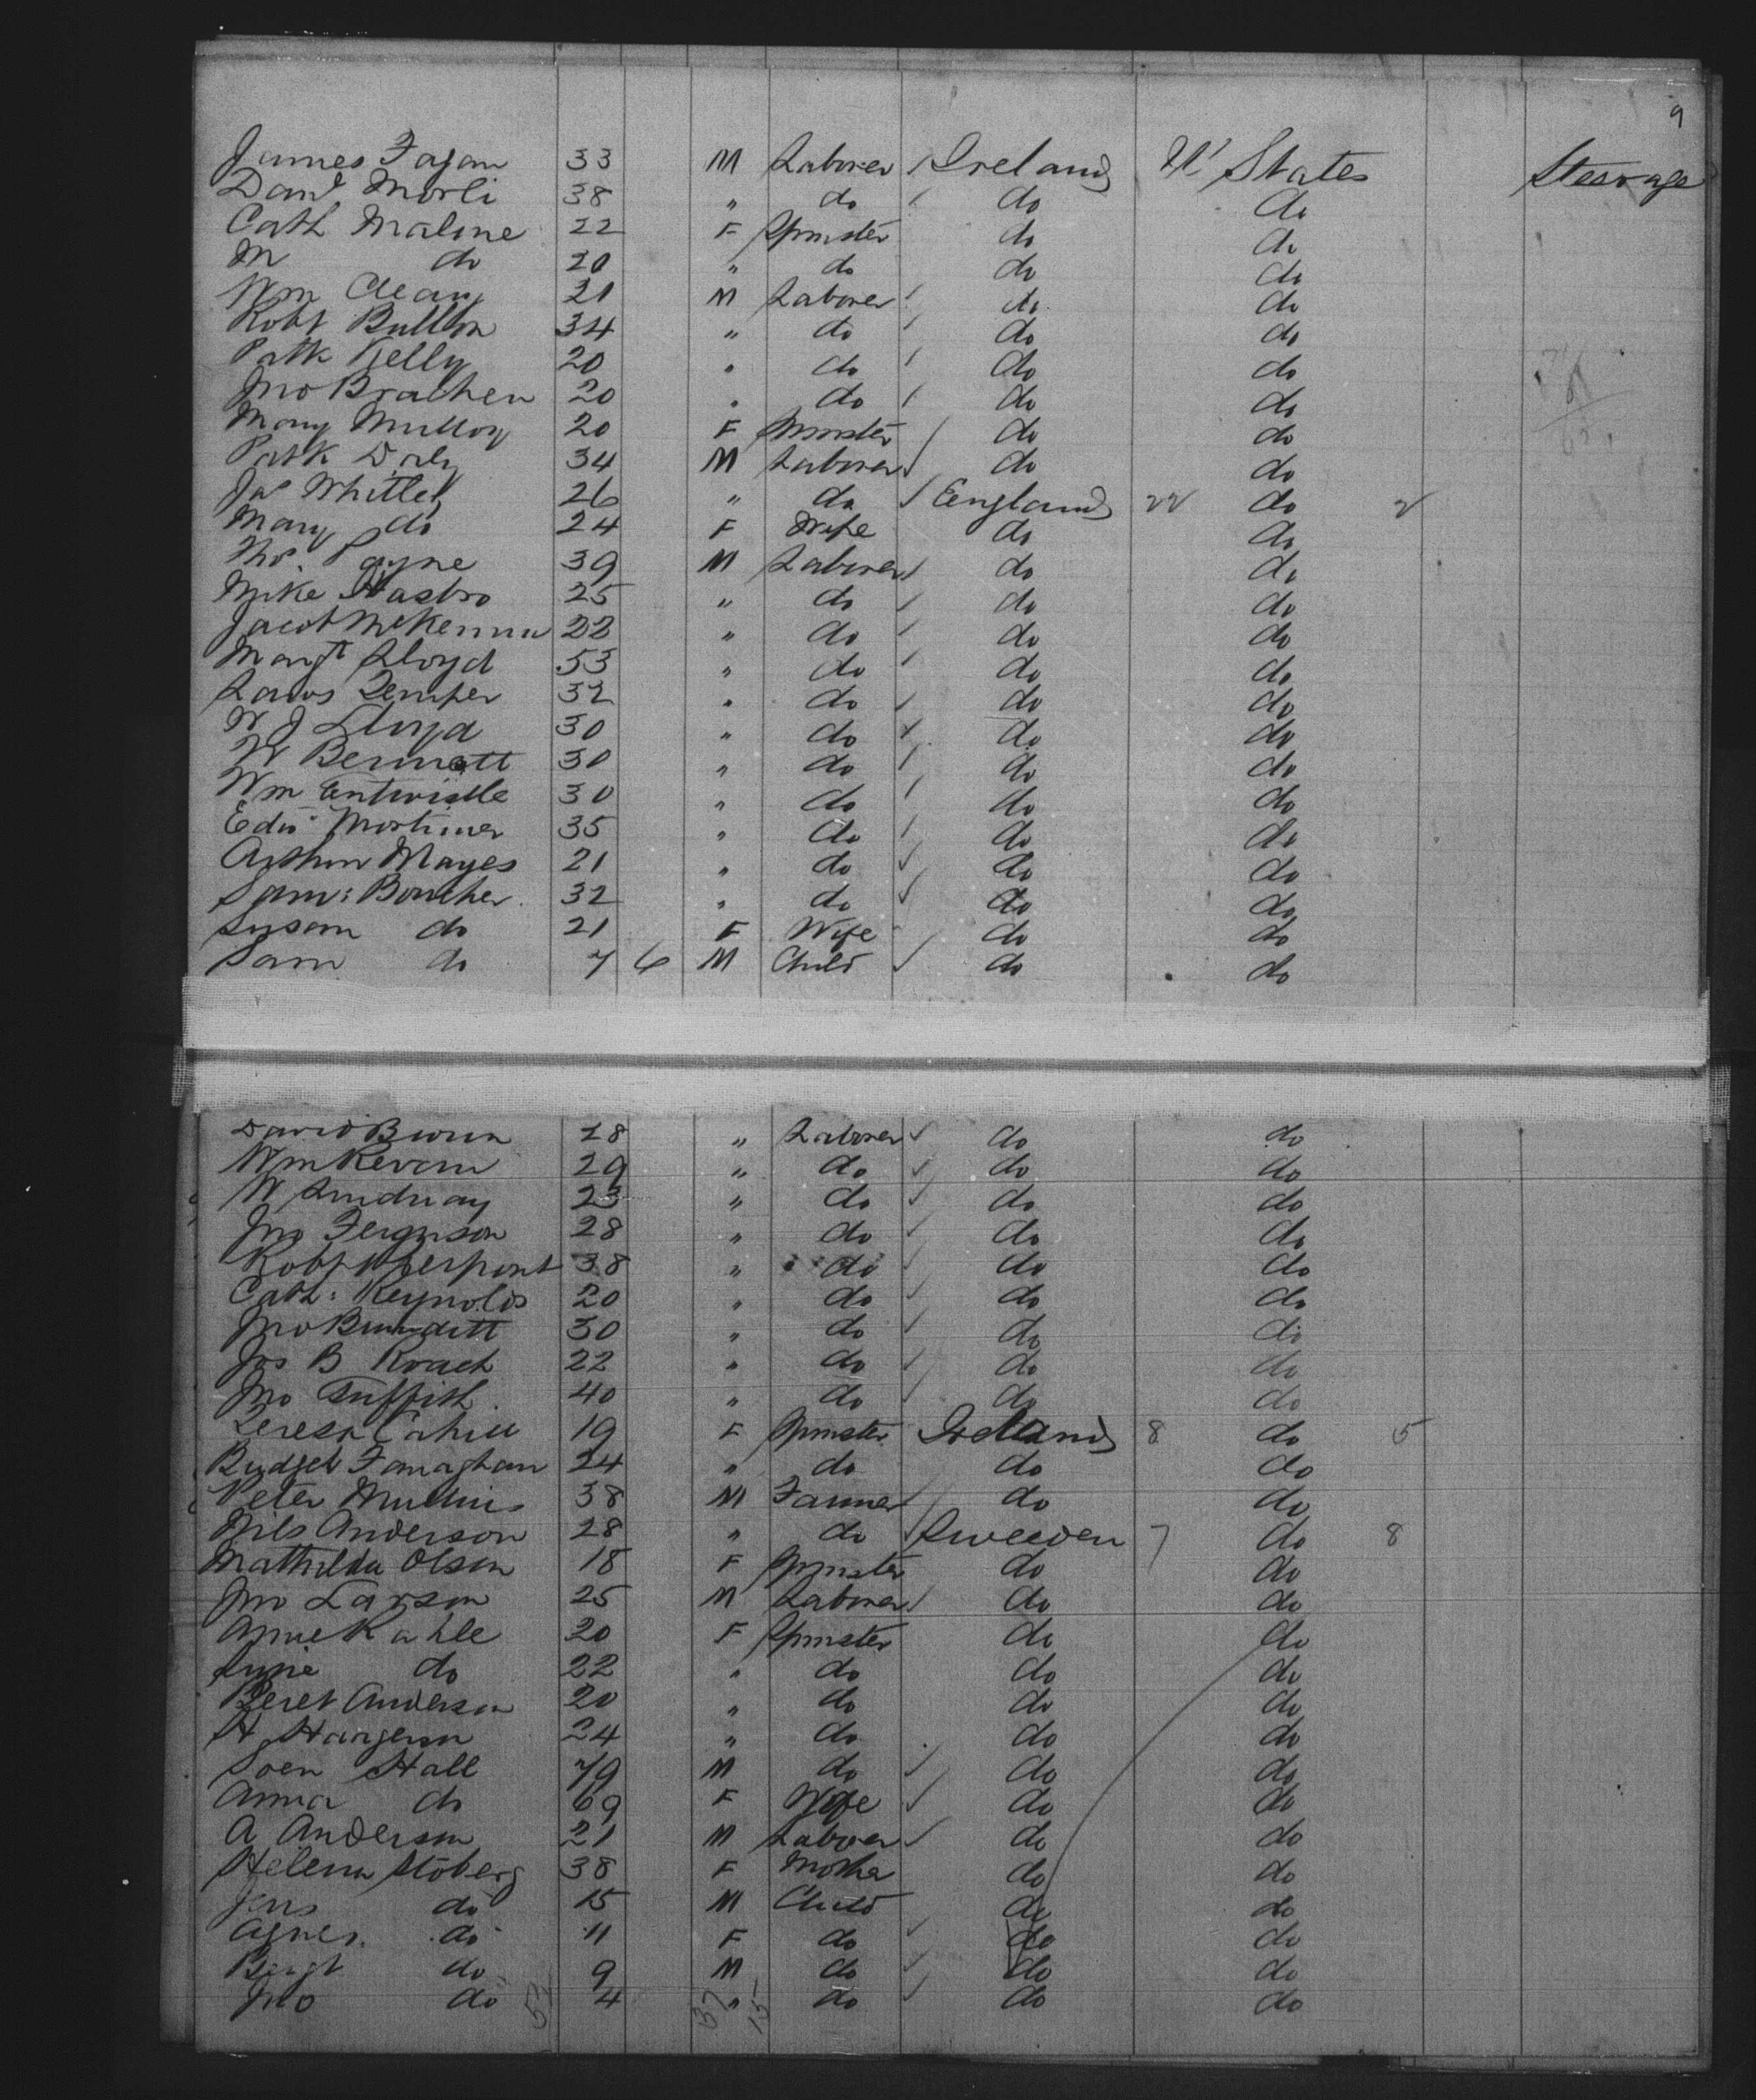 9
James Fagan 33 M Laborer Ireland U States Steerage
Danl Morli 38 " do do do
Cath Malone 22 F Spinster do do
M do 20 " do do do
Wm Cleary 21 M Laborer do do
Robt Bullon 34 " do do do
Patk Kelly 20 " do do do
Jno Brachen 20 " do do do
Mary Mulloy 20 F Spinster do do
Patk Daly 34 M Laborer do do
Jas Whittle 26 " do England 22 do 2
Mary do 24 F Wife do do
Ths. Payne 39 M Laborer do do
Mike Hastro 25 " do do do
Jacob McKenna 22 " do do do
Margt Lloyd 53 " do do do
Laws Semper 32 " do do do
W J Lloyd 30 " do do do
W Bennett 30 " do do do
Wm Entwistle 30 " do do do
Edw Mortimer 35 " do do do
Arthur Mayes 21 " do do do
Sam: Boucher 32 " do do do
Susan do 21 F Wife do do
Sam do 7 6 M Child do do
David Bwin 28 " Laborer do do
Wm Revan 29 " do do do
W Lindway 23 " do do do
Jno Ferguson 28 " do do do
Robt 38 " do do do
Cath: Reynolds 20 " do do do
Jno Burdett 30 " do do do
Jos B Roach 22 " do do do
Jno 40 " do do do
Teresa Cahill 19 F Spinster Ireland 8 do 5
Bridget Fanaghan 24 " do do do
Peter Mullins 38 M Farmer do do
Nils Anderson 28 " do Sweeden 7 do 8
Mathilda Olson 18 F Spinster do do
Jno Larson 25 M Laborer do do
Annie Kahle 20 F Spinster do do
do 22 " do do do
Beret Anderson 20 " do do do
H Hangerson 24 " do do do
Soen Hall 79 M do do do
Anna do 69 F Wife do do
A Anderson 21 M Laborer do do
Helena Stoberg 38 F Mother do do
Jens do 15 M Child do do
Agnes do 11 F do do do
Bengt do 9 M do do do
Jno do 4 " do do do
52 37 15